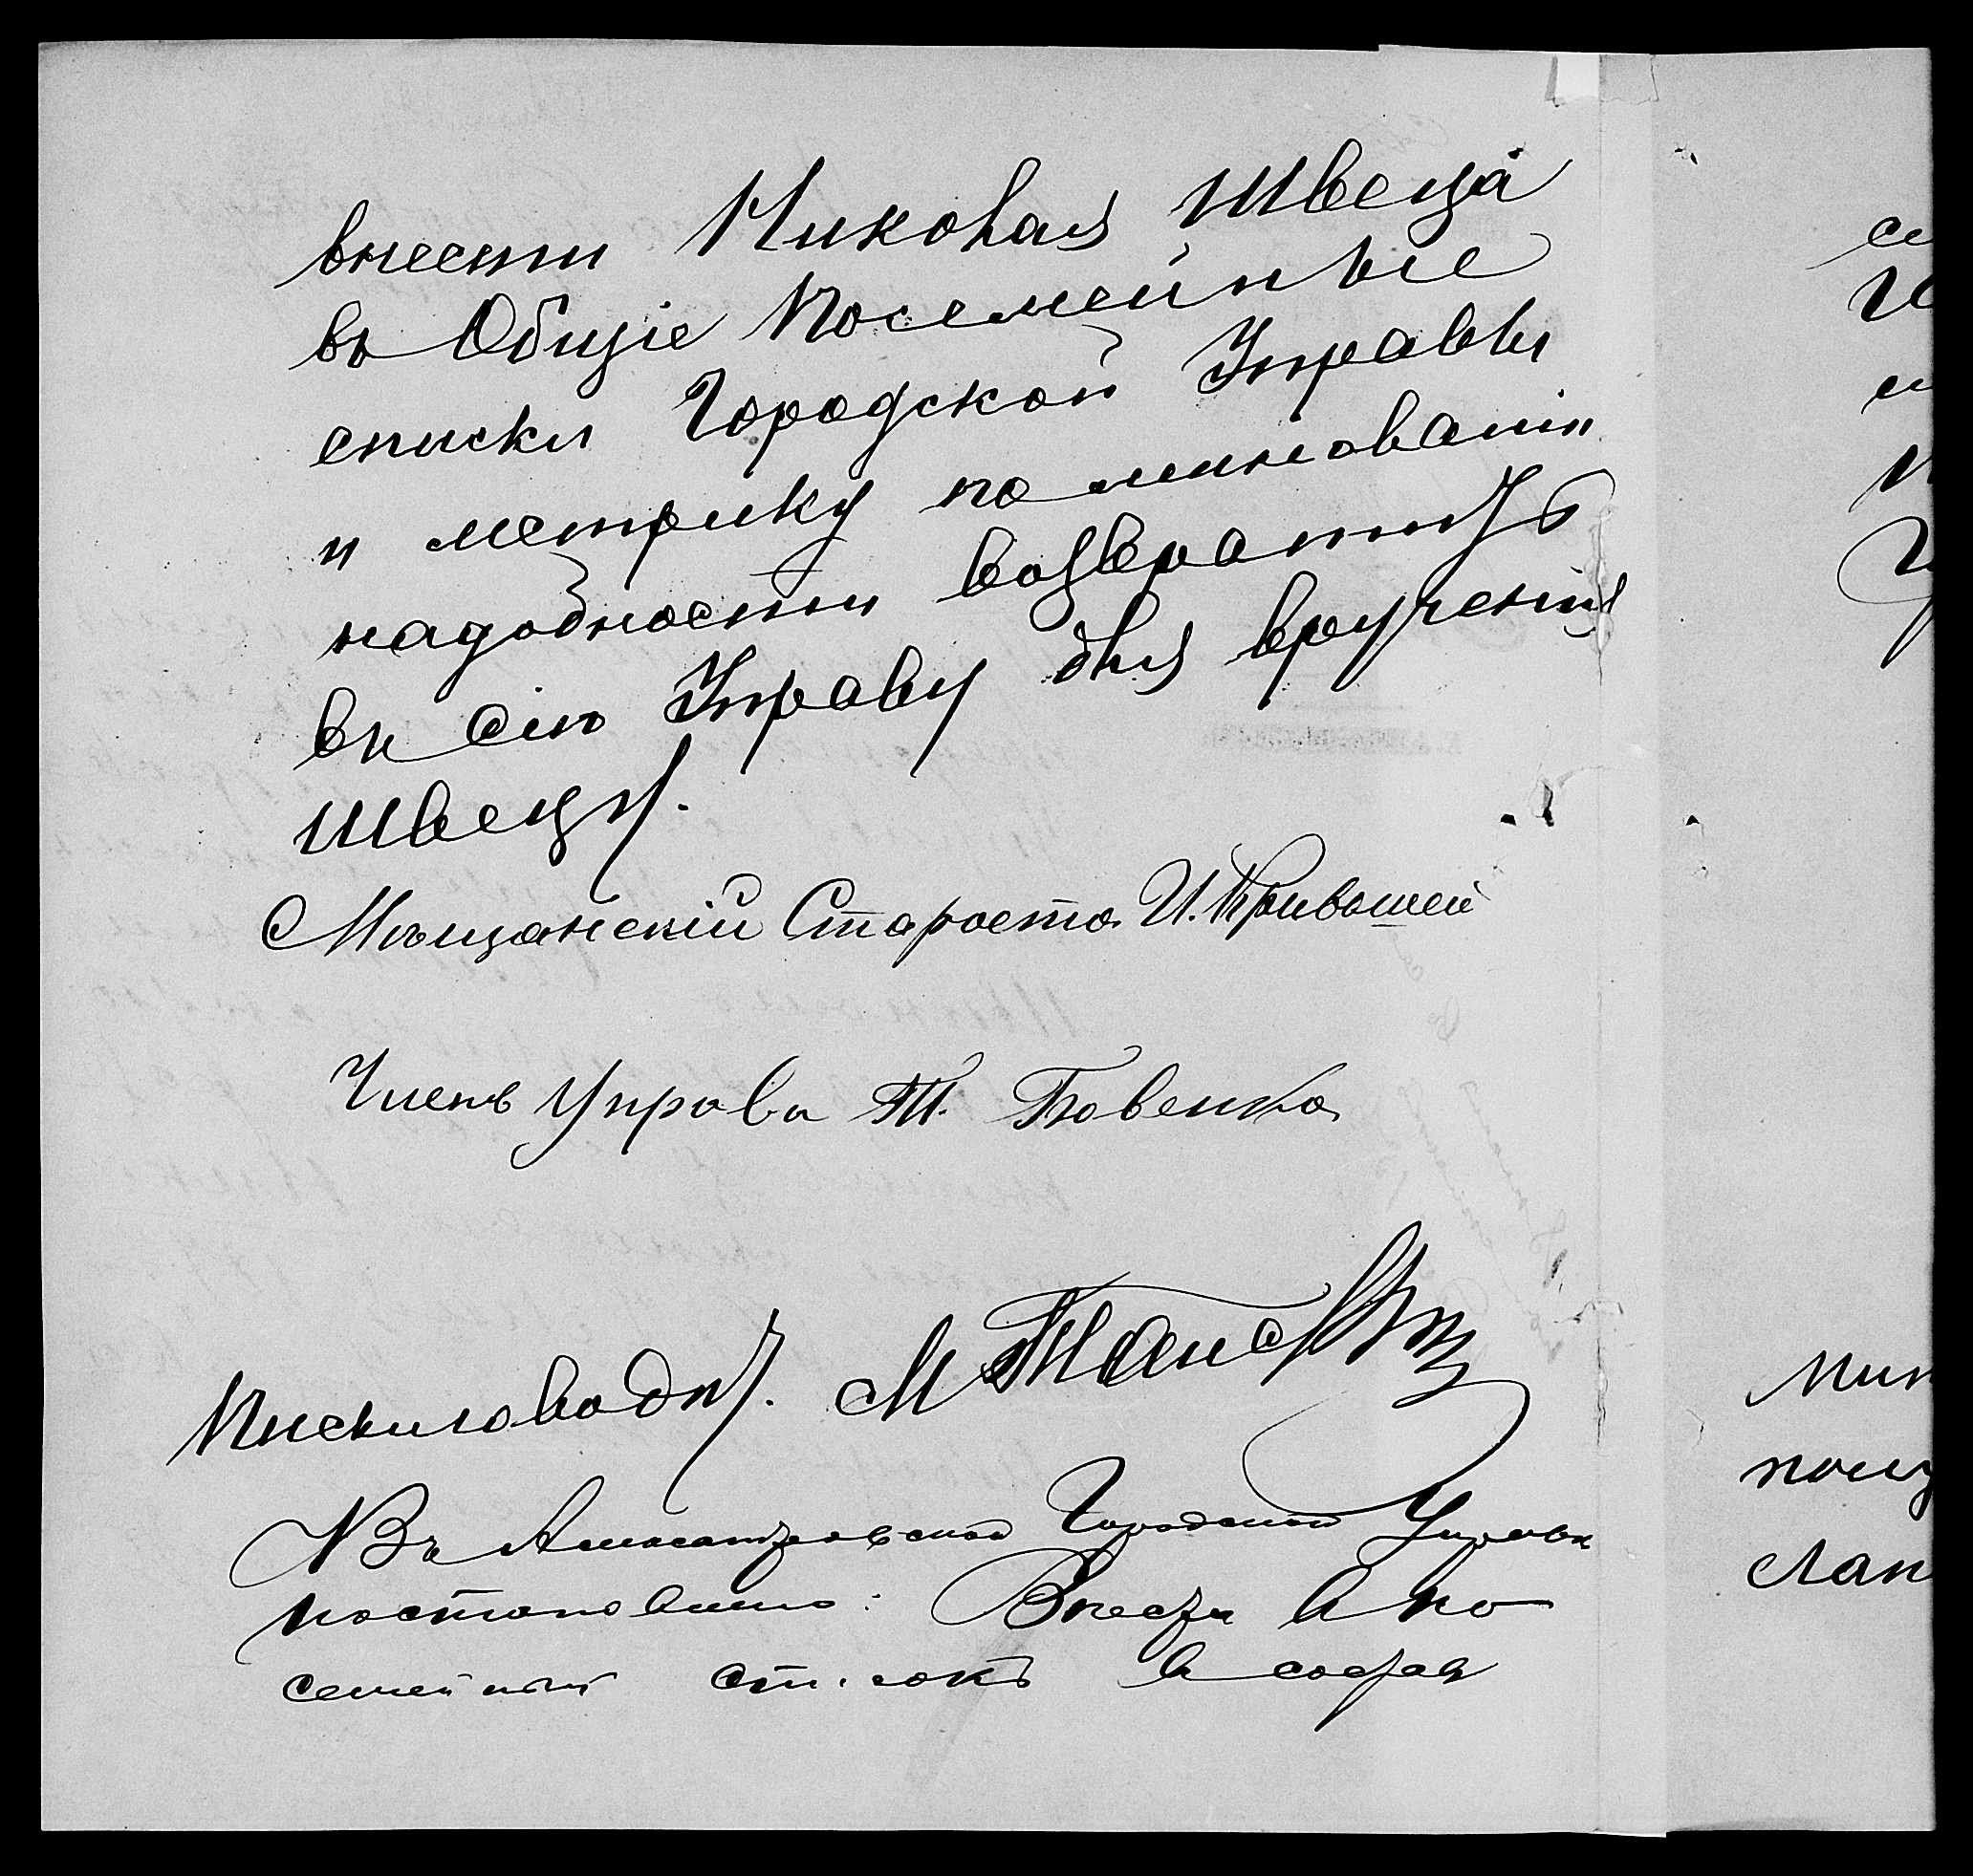 внести Николая Швеца
въ Общіе посемейные
списки Городской Управы
и метрику по минованіи
надобности возвратить
въ сію Управу для врученія
Швецу.
Мѣщанскій Староста И. Кривошей
Членъ Управы Т. Бовенко
Письмоводит. М
Въ Александровской Городской Управѣ
постановлено: Внести въ по
семейный списокъ въ состав